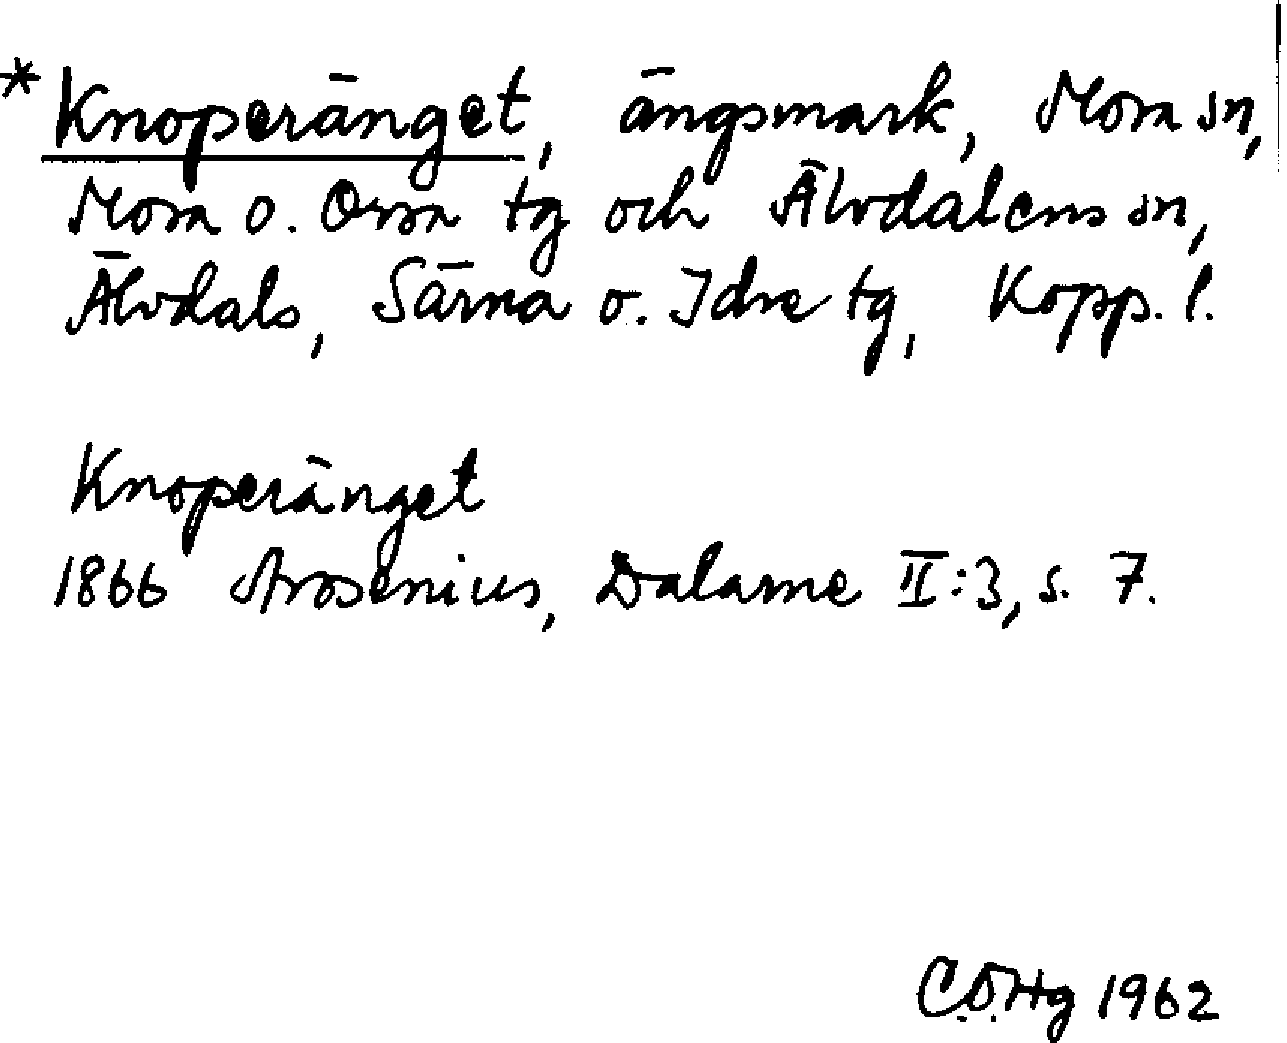 *Knoperänget, ängsmark, Mora sn,
Mora o. Orsa tg och Älvdalens sn,
Älvdals, Särna o. Idre tg, Kopp. l.
Knoperänget
1866 Arosenius, Dalarne II:3, s. 7.
C.Ö.Hg 1962